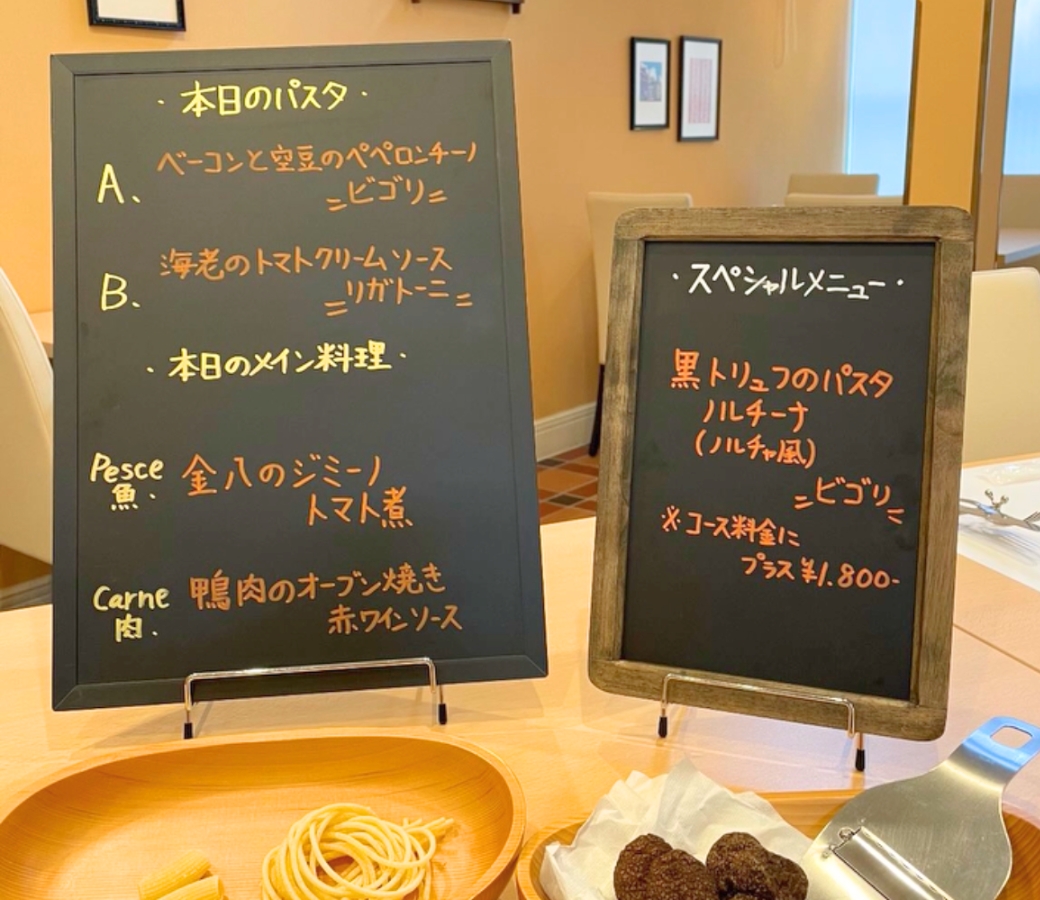 ・本日のパスタ・
A、ベーコンと空豆のペペロンチーノ
=ビゴリ=
B、海老のトマトクリームソース
=リガトーニ=
・本日のメイン料理・
Pesce 金八のジミーノ
魚. トマト煮
Carne 鴨肉のオーブン焼き
肉. 赤ワインソース
・スペシャルメニュー・
黒トリュフのパスタ
ノルチーナ
(ノルチャ風)
=ビゴリ=
※コース料金に
プラス¥1.800-